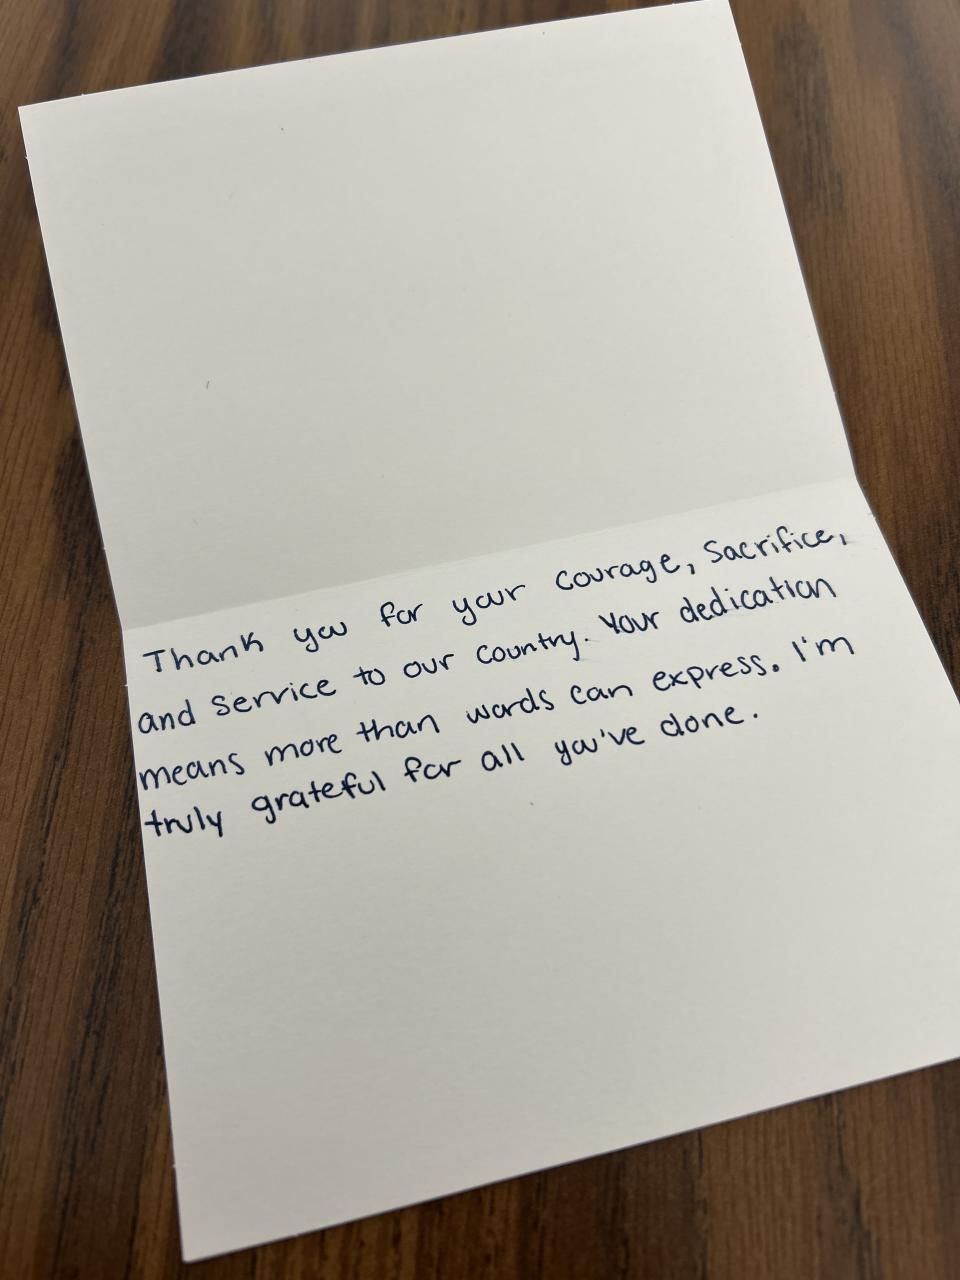 Thank you for your courage, sacrifice,
and service to our country. Your dedication
means more than words can express. I'm
truly grateful for all you've done.